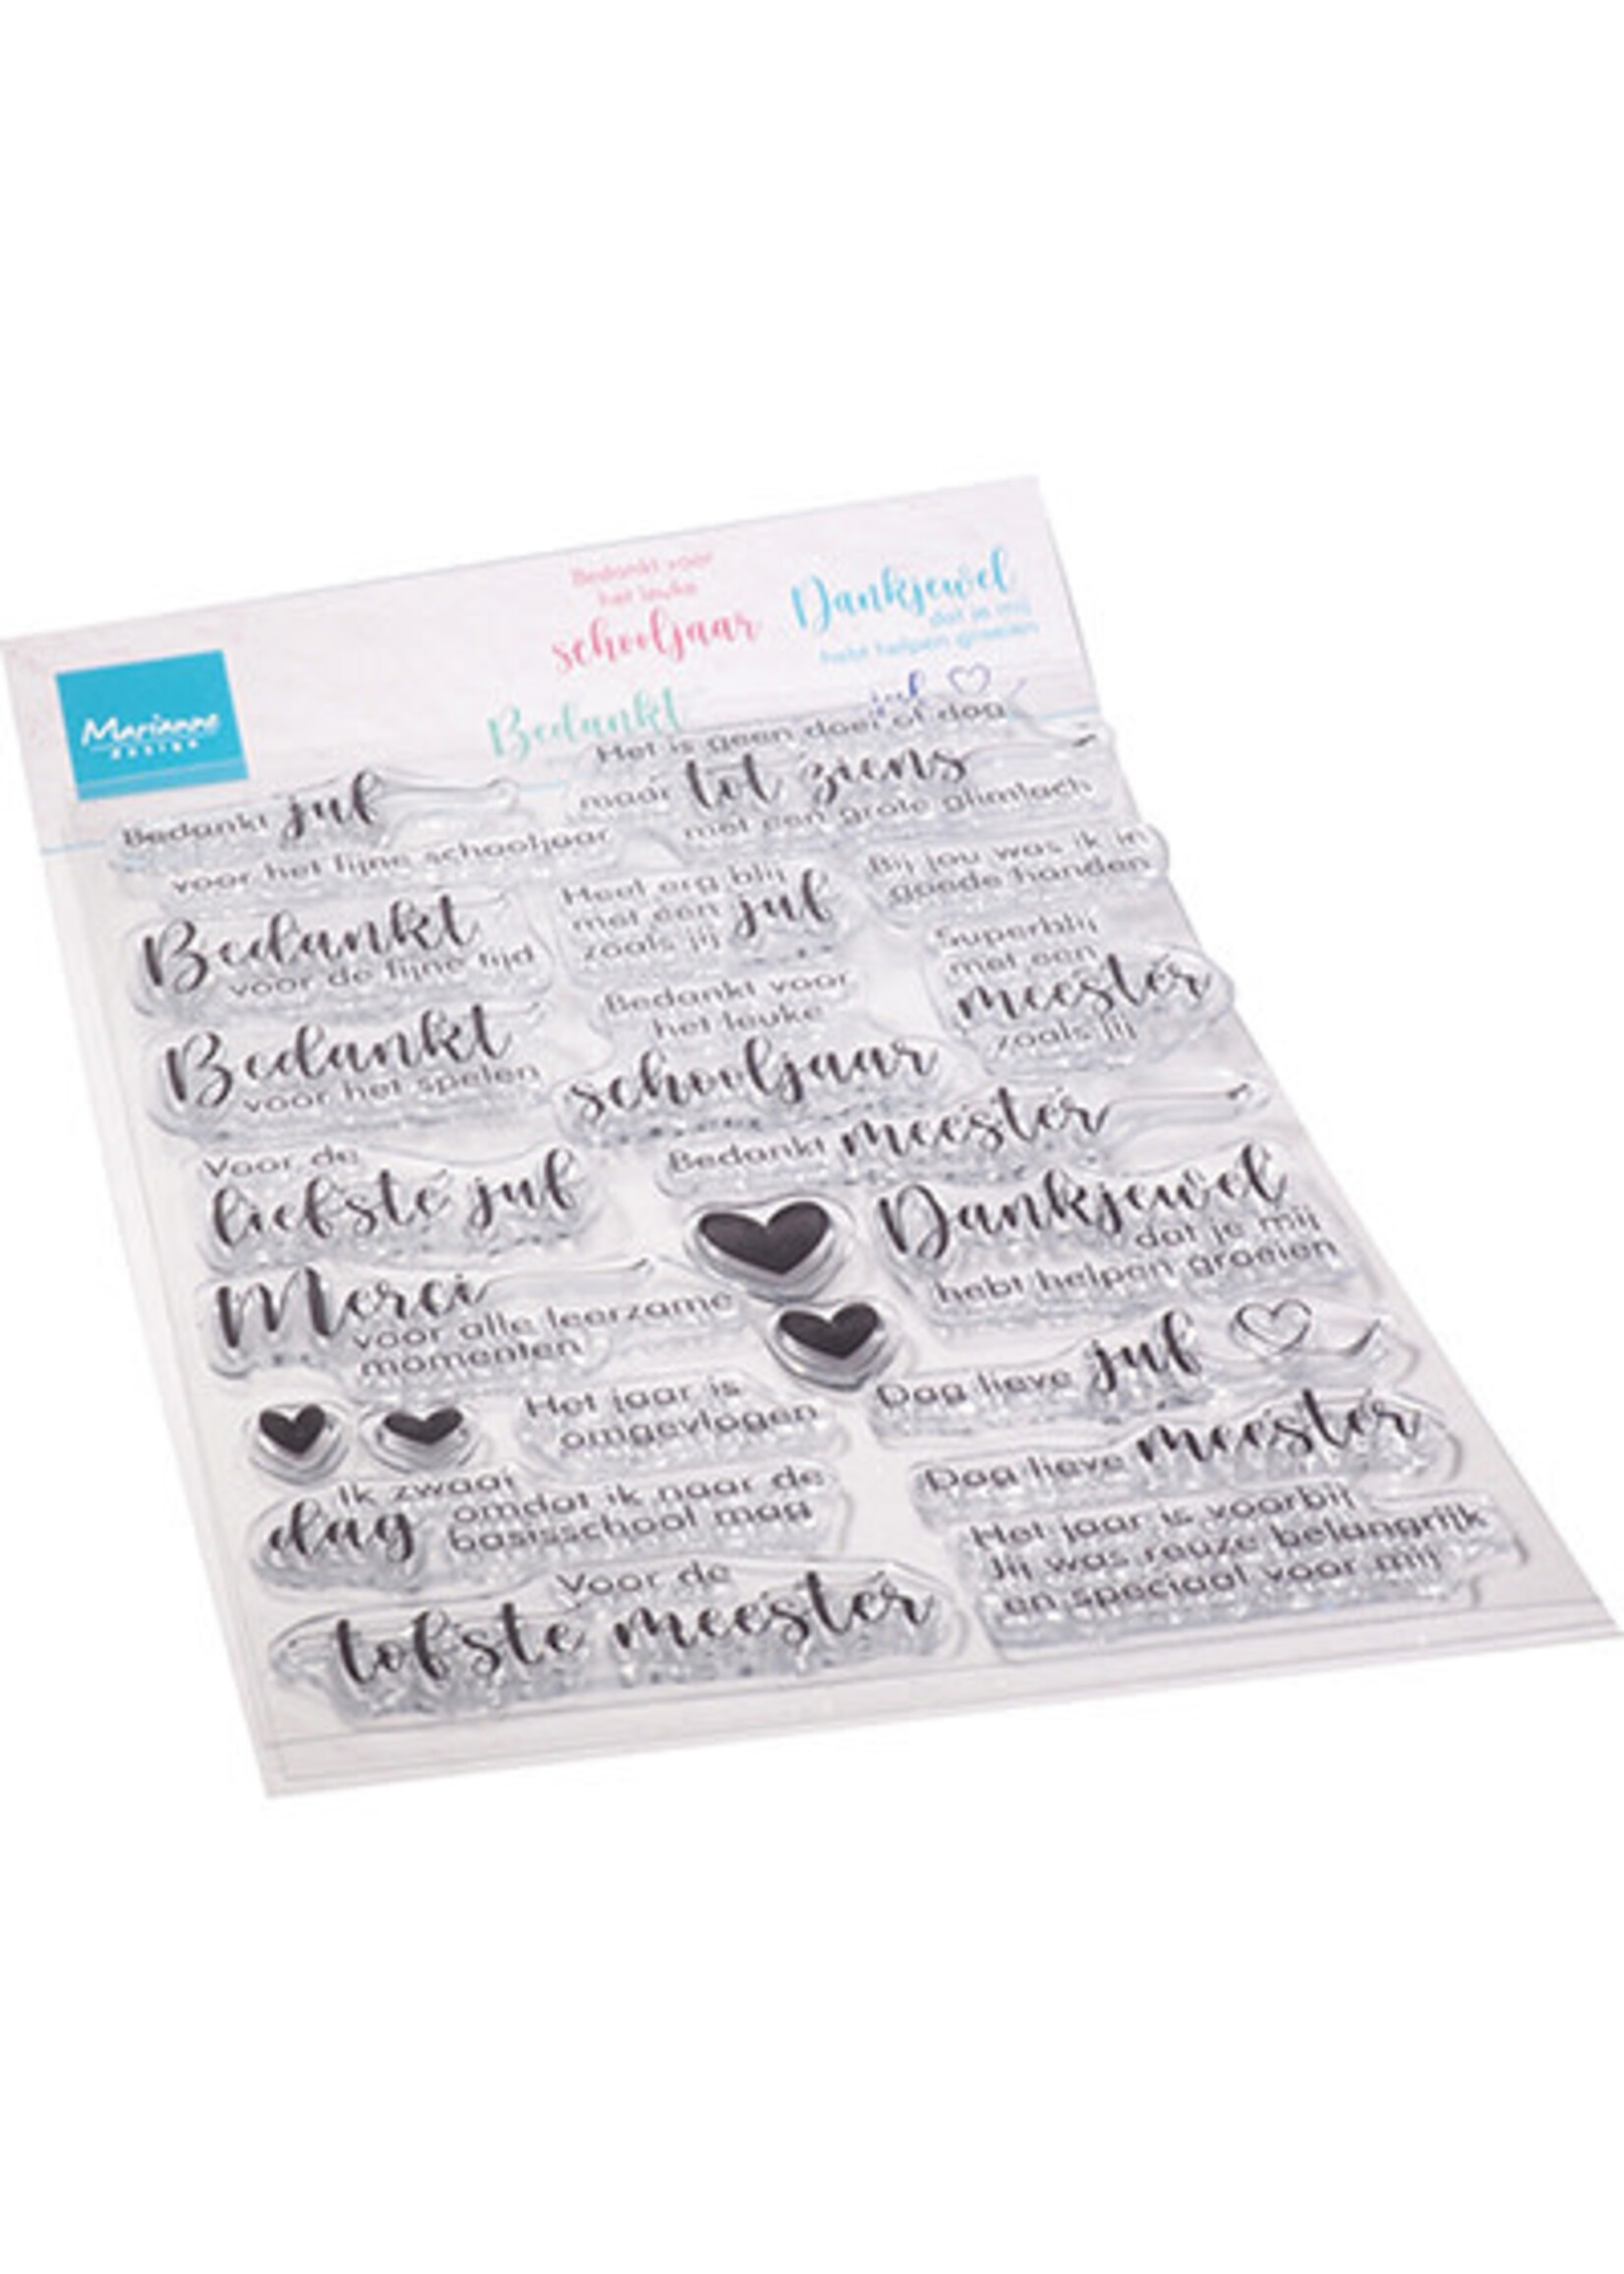 Bedankt voor
het leuke
schooljaar
Dankjewel
dat je mij
hebt helpen groeien
Marianne
DESIGN
Bedankt
juf
Het is geen doei of dag
maar tot ziens
met een grote glimlach
Bedankt juf
voor het fijne schooljaar
Bedankt
voor de fijne tijd
Heel erg blij
met een juf
zoals jij
Bij jou was ik in
goede handen
Superblij
met een
meester
zoals jij
Bedankt
voor het spelen
Bedankt voor
het leuke
schooljaar
Bedankt meester
Voor de
liefste juf
Dankjewel
dat je mij
hebt helpen groeien
Merci
voor alle leerzame
momenten
Dag lieve juf
Het jaar is
omgevlogen
Dag lieve meester
Ik zwaai
dag omdat ik naar de
basisschool mag
Het jaar is voorbij
Jij was reuze belangrijk
en speciaal voor mij
Voor de
tofste meester